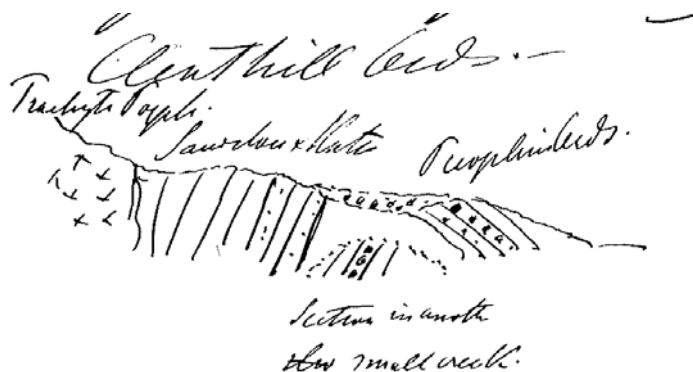 Clent hill beds.—
Trachyte Porph.
Sandstone & Slate
beds.
Section in anoth
small creek.